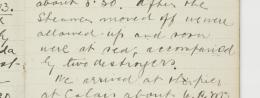 33.
about 5.30. After the
Steamer moved off we were
allowed up and soon
were at sea, accompanied
by two destroyers.
We arrived at the pier
at Calais about 6.